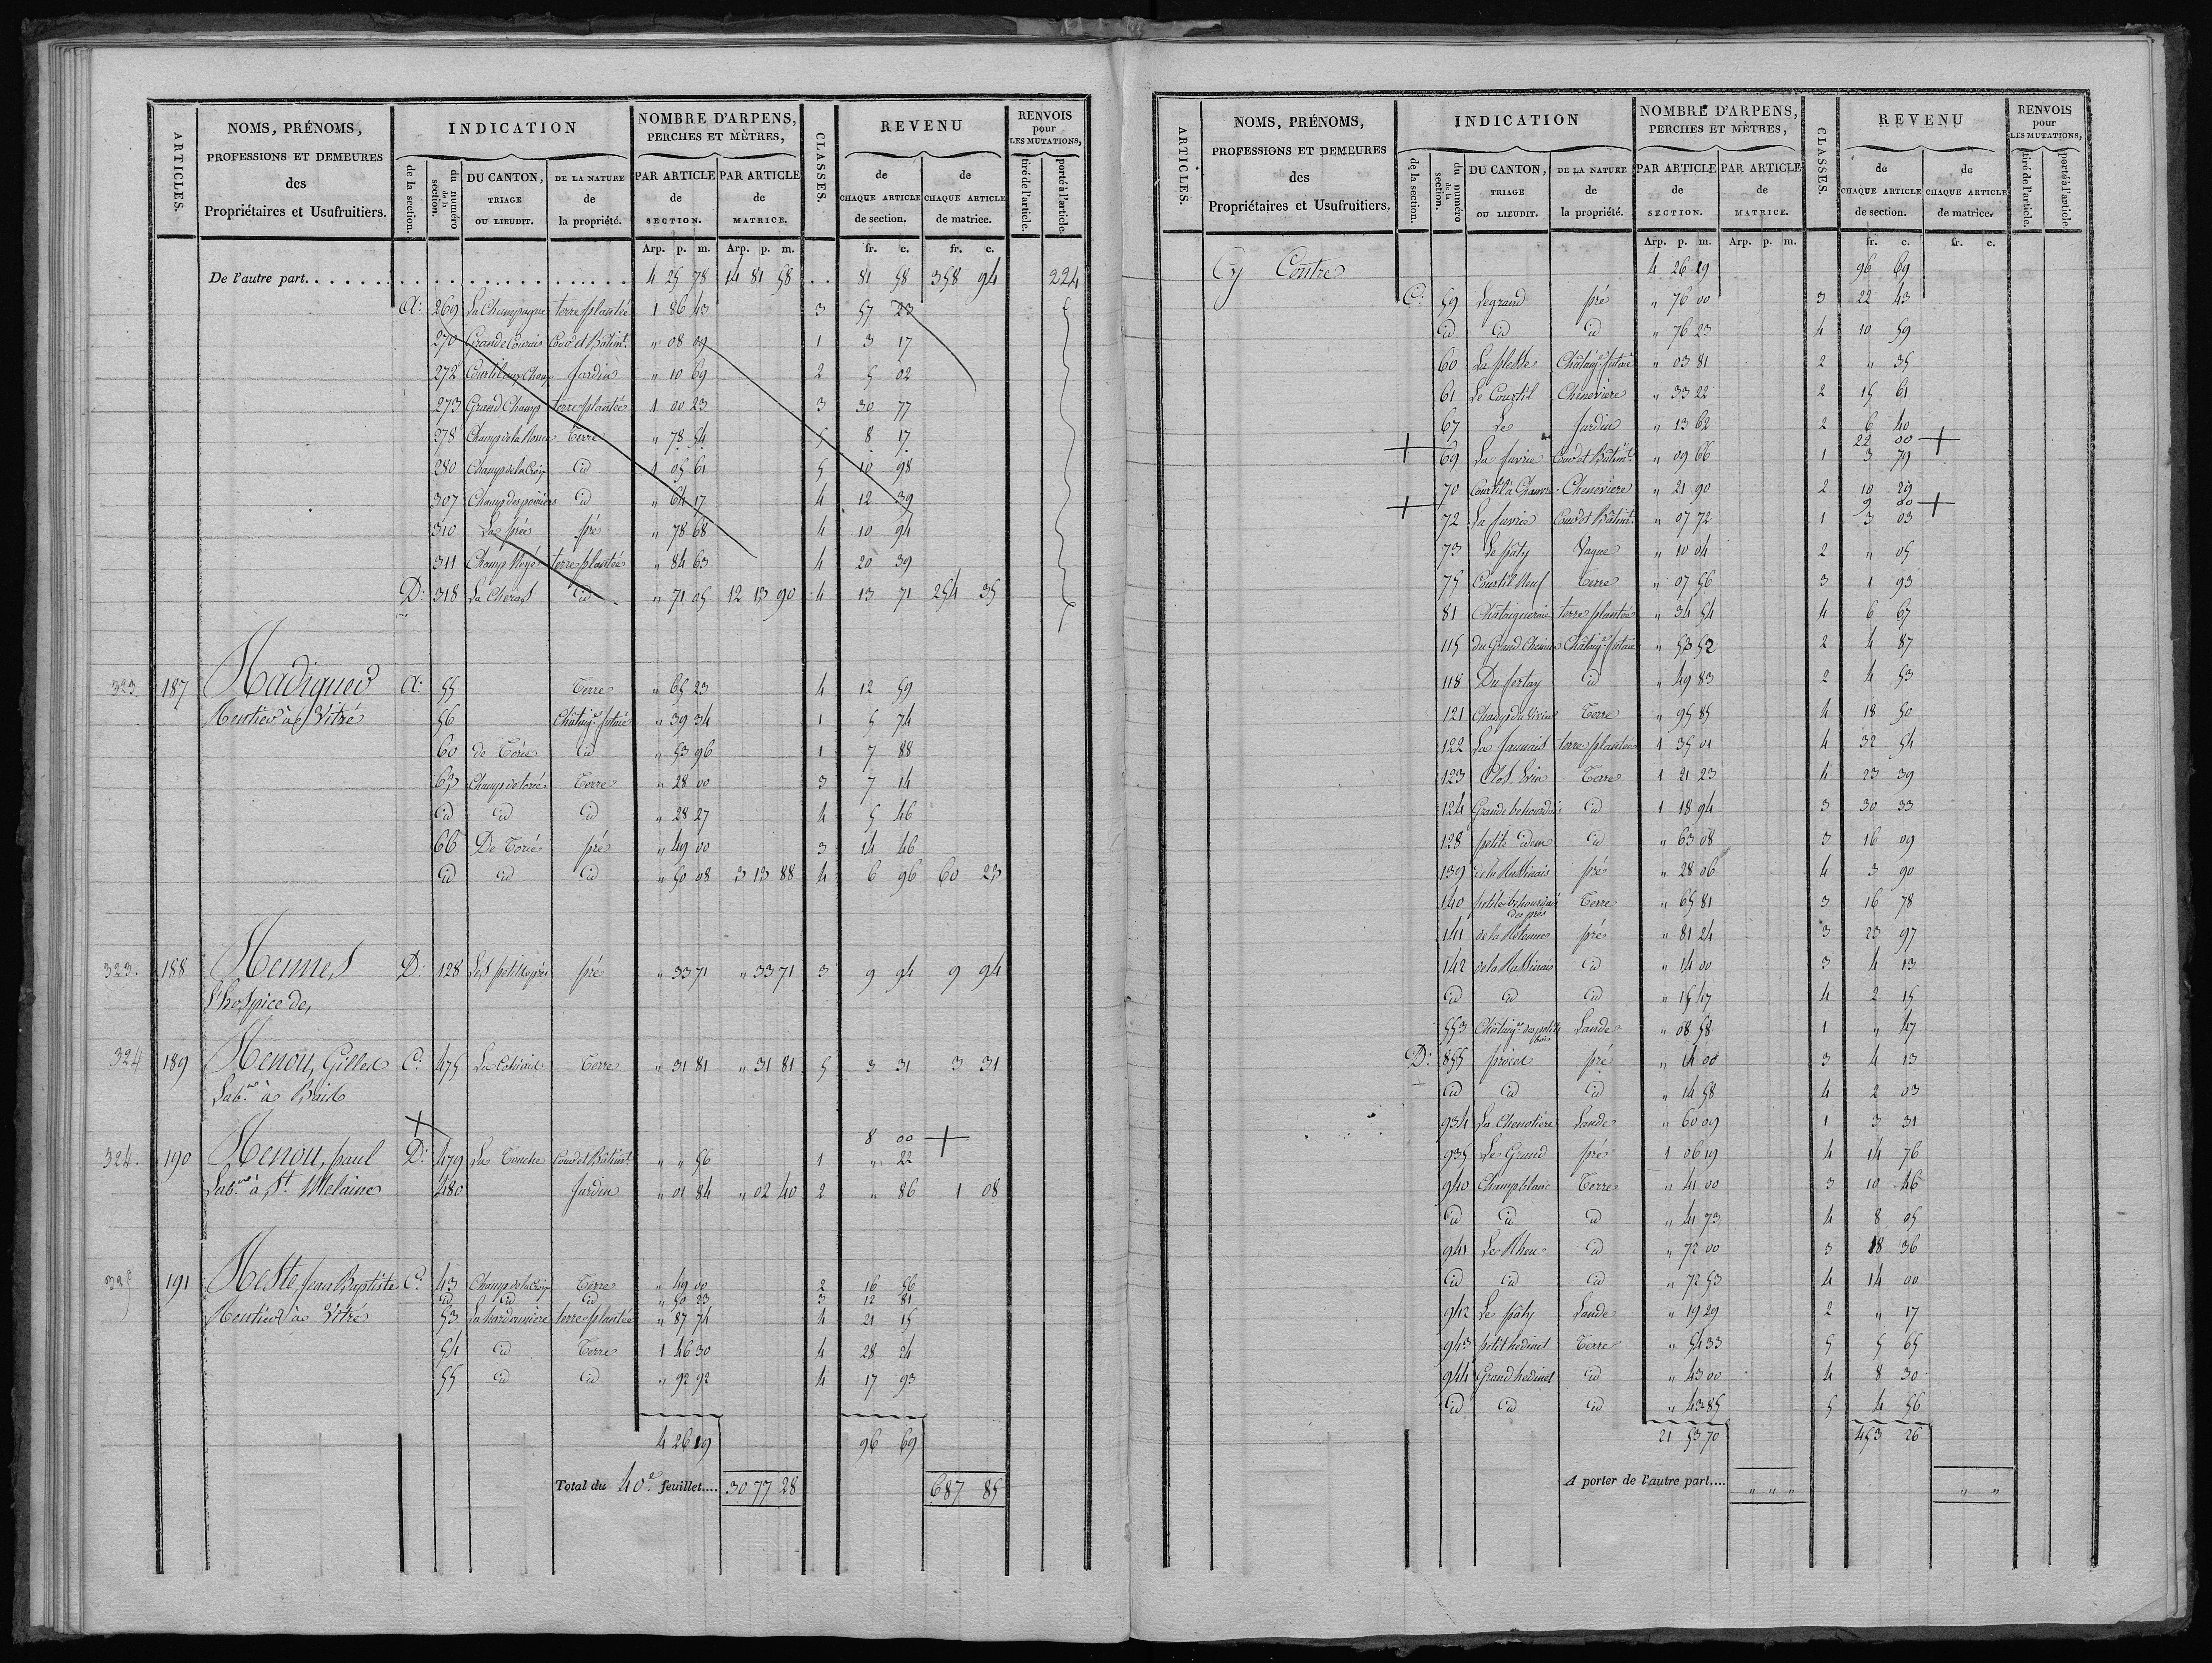 ARTICLES.
NOMS, PRÉNOMS,
PROFESSIONS ET DEMEURES
des
Propriétaires et Usufruitiers.
INDICATION
de la section.
du numéro de la section.
DU CANTON, TRIAGE OU LIEUDIT.
DE LA NATURE de la propriété.
NOMBRE D'ARPENS, PERCHES ET MÈTRES,
PAR ARTICLE de SECTION.
PAR ARTICLE de MATRICE.
CLASSES.
REVENU
de CHAQUE ARTICLE de section.
de CHAQUE ARTICLE de matrice.
RENVOIS pour LES MUTATIONS,
tiré de l'article.
porté à l'article
Arp. p. m. Arp. p. m. fr. c. fr. c.
De l'autre part. 4 25 78 14 81 58 81 58 358 94 224
A: 269 La Champagne terre plantée 1 86 43 3 57 23
270 Grande Courais Cour et Bâtimt. " 08 09 1 3 17
272 Courtil aux Choux Jardin " 10 69 2 5 02
273 Grand Champ terre plantée 1 00 23 3 30 77
278 Champ de la Terre " 78 54 5 8 17
280 Champ de la Croix id 1 05 61 5 10 98
307 Champ des poiriers id " 64 17 4 12 39
310 La prée pré " 78 68 4 10 94
311 Champ terre plantée " 84 63 4 20 39
D: 318 La id " 71 05 12 13 90 4 13 71 254 35
323 187 Radiguer A: 55 Terre " 65 23 4 12 59
Rentier à Vitré 56 Châtaigr. futaie " 39 34 1 5 74
60 de Torée id " 53 96 1 7 88
65 Champ de torée Terre " 28 00 3 7 14
id id id " 28 27 4 5 46
66 De Torée pré " 49 00 3 14 46
id id id " 50 08 3 13 88 4 6 96 60 23
323. 188 Rennes D: 128 Les petits prés pré " 33 71 " 33 71 3 9 94 9 94
l'hospice de,
324 189 Renou, Gilles C: 475 La Terre " 31 81 " 31 81 5 3 31 3 31
Labr. à Brait
8 00
324. 190 Renou, paul D: 479 La Touche Cour et Bâtimt. " " 56 1 " 22
Labr. à St. Melaine 480 Jardin " 01 84 " 02 40 2 " 86 1 08
325 191 Reste, Jean Baptiste C: 43 Champ de la Croix Terre " 49 00 2 16 56
id id id " 50 23 3 12 81
Rentier à Vitré 53 La hardouiniere terre plantée " 87 74 4 21 15
54 id Terre 1 46 30 4 28 24
55 id id " 92 92 4 17 93
4 26 19 96 69
Total du 40e. feuillet.... 30 77 28 687 85
ARTICLES.
NOMS, PRÉNOMS,
PROFESSIONS ET DEMEURES
des
Propriétaires et Usufruitiers,
INDICATION
de la section.
du numéro de la section.
DU CANTON, TRIAGE OU LIEUDIT.
DE LA NATURE de la propriété.
NOMBRE D'ARPENS, PERCHES ET MÈTRES,
PAR ARTICLE de SECTION.
PAR ARTICLE de MATRICE.
CLASSES.
REVENU
de CHAQUE ARTICLE de section.
de CHAQUE ARTICLE de matrice.
RENVOIS pour LES MUTATIONS,
tiré de l'article.
porté à l'article
Arp. p. m. Arp. p. m. fr. c. fr. c.
Cy Contre 4 26 19 96 69
C: 59 Le grand pré " 76 00 3 22 43
id id id " 76 23 4 10 59
60 La plesse Châtaigr. futaie " 03 81 2 " 35
61 Le Courtil Cheneviere " 33 22 2 15 61
67 Le Jardin " 13 62 2 6 40
22 00
69 La Cour et Bâtimt. " 09 66 1 3 79
70 Courtil à Chanvre Cheneviere " 21 90 2 10 29
9 00
72 La Cour et Bâtimt. " 07 72 1 3 03
73 Le pâty Vague " 10 04 2 " 05
75 Courtil Neuf Terre " 07 56 3 1 93
81 Châtaigneraie terre plantée " 34 54 4 6 67
115 du Grand Chemin Châtaigr. futaie " 53 52 2 4 87
118 Du id " 49 83 2 4 53
121 Champ du Vivier Terre " 95 85 4 18 50
122 La Jaunais terre plantée 1 35 01 4 32 54
123 Clos Terre 1 21 23 4 23 39
124 Grande id 1 18 94 3 30 33
128 petite idem id " 63 08 3 16 09
139 de la pré " 28 06 4 3 90
140 petite des prés Terre " 65 81 3 16 78
141 de la Retenue pré " 81 24 3 23 97
142 de la id " 14 00 3 4 13
id id id " 15 47 4 2 15
553 Châtaigr. des petits bois Lande " 08 58 1 " 47
D: 855 pré " 14 00 3 4 13
id id id " 14 58 4 2 03
934 La Chenotiere Lande " 60 09 1 3 31
935 Le Grand pré 1 06 19 4 14 76
940 Champ blanc Terre " 41 00 3 10 46
id id id " 41 73 4 8 05
941 Le Rheu id " 72 00 3 18 36
id id id " 72 53 4 14 00
942 Le pâty Lande " 19 29 2 " 17
943 petit hedinel Terre " 54 33 5 5 65
944 Grand hedinel id " 43 00 4 8 30
id id id " 43 85 5 4 56
21 53 70 453 26
A porter de l'autre part.... " " " " "